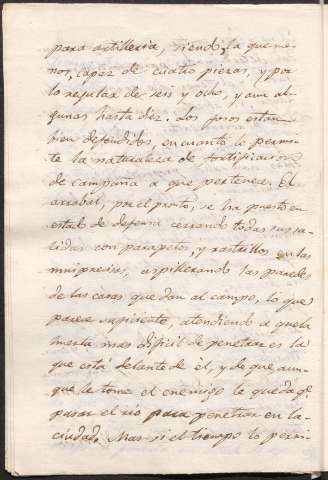 para artilleria, siendo la que me-
nos, capáz de cuatro piezas, y por
lo regular de seis y ocho, y aun al-
gunas hasta diez. Los fosos estan
bien defendidos, en cuanto lo permi-
te la naturaleza de fortificacion
de campaña a que pertenece. El
arrabal, por el pronto, se ha puesto en
estado de defensa cerrando todas sus sa-
lidas con parapetos, y rastrillos en las
mui precisas, aspillerando las paredes
de las casas que dan al campo, lo que
parece suficiente, atendiendo a que la
puerta mas dificil de penetrar es la
que está delante de él, y de que, aun-
que le tome el enemigo le queda qe
pasar el rio para penetrar en la
ciudad. Mas si el tiempo lo permi-